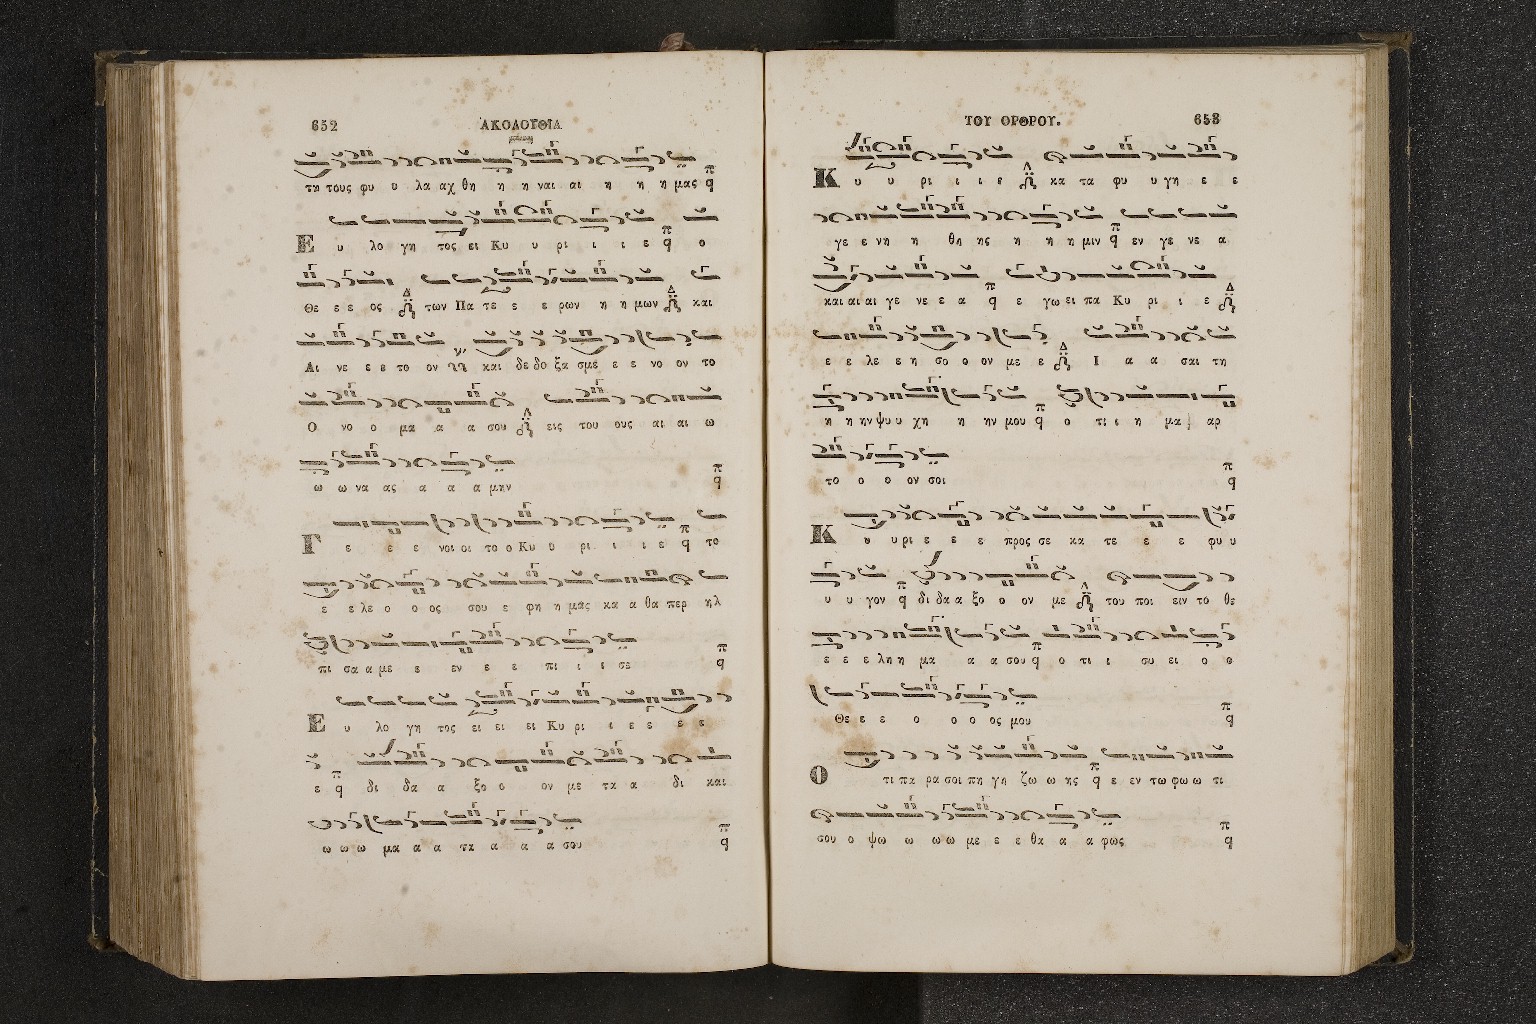 652 ΑΚΟΛΟΥΘΙΑ
τη τους φυ υ λα αχ θη η η ναι αι η η η μας q
Ε υ λο γη τος ει Κυ υ ρι ι ι ε q ο
Θε ε ε ος των Πα τε ε ε ρων η η μων και
Αι νε ε ε το ον και δε δο ξα σμε ε ε νο ον το
Ο νο ο μα α α σου εις του ους αι αι ω
ω ω να ας α α α μην q
Γ ε ε ε νοι οι το ο Κυ υ ρι ι ι ε q το
ε ε λε ο ο ος σου ε φη η μας κα α θα περ ηλ
πι σα α με ε εν ε ε πι ι ι σε q
Ε υ λο γη τος ει ει ει Κυ ρι ι ε ε ε ε
ε q δι δα α ξο ο ον με τα α δι και
ω ω ω μα α α τα α α α σου q
ΤΟΥ ΟΡΘΡΟΥ. 653
Κ υ υ ρι ι ι ε κα τα φυ υ γη ε ε
γε ε νη η θη ης η η η μιν q εν γε νε α
και αι αι γε νε ε α q ε γω ει πα Κυ ρι ι ε
ε ε λε ε η σο ο ον με ε Ι α α σαι τη
η η ην ψυ υ χη η ην μου q ο τι ι η μα αρ
το ο ο ον σοι q
Κ υ υ ρι ε ε ε προς σε κα τε ε ε φυ υ
υ υ γον q δι δα α ξο ο ον με του ποι ειν το θε
ε ε ε λη η μα α α σου q ο τι ι συ ει ο ο
Θε ε ε ο ο ο ος μου q
Ο τι πα ρα σοι πη γη ζω ω ης q ε εν τω φω ω τι
σου ο ψω ω ω ω με ε ε θα α α φως q